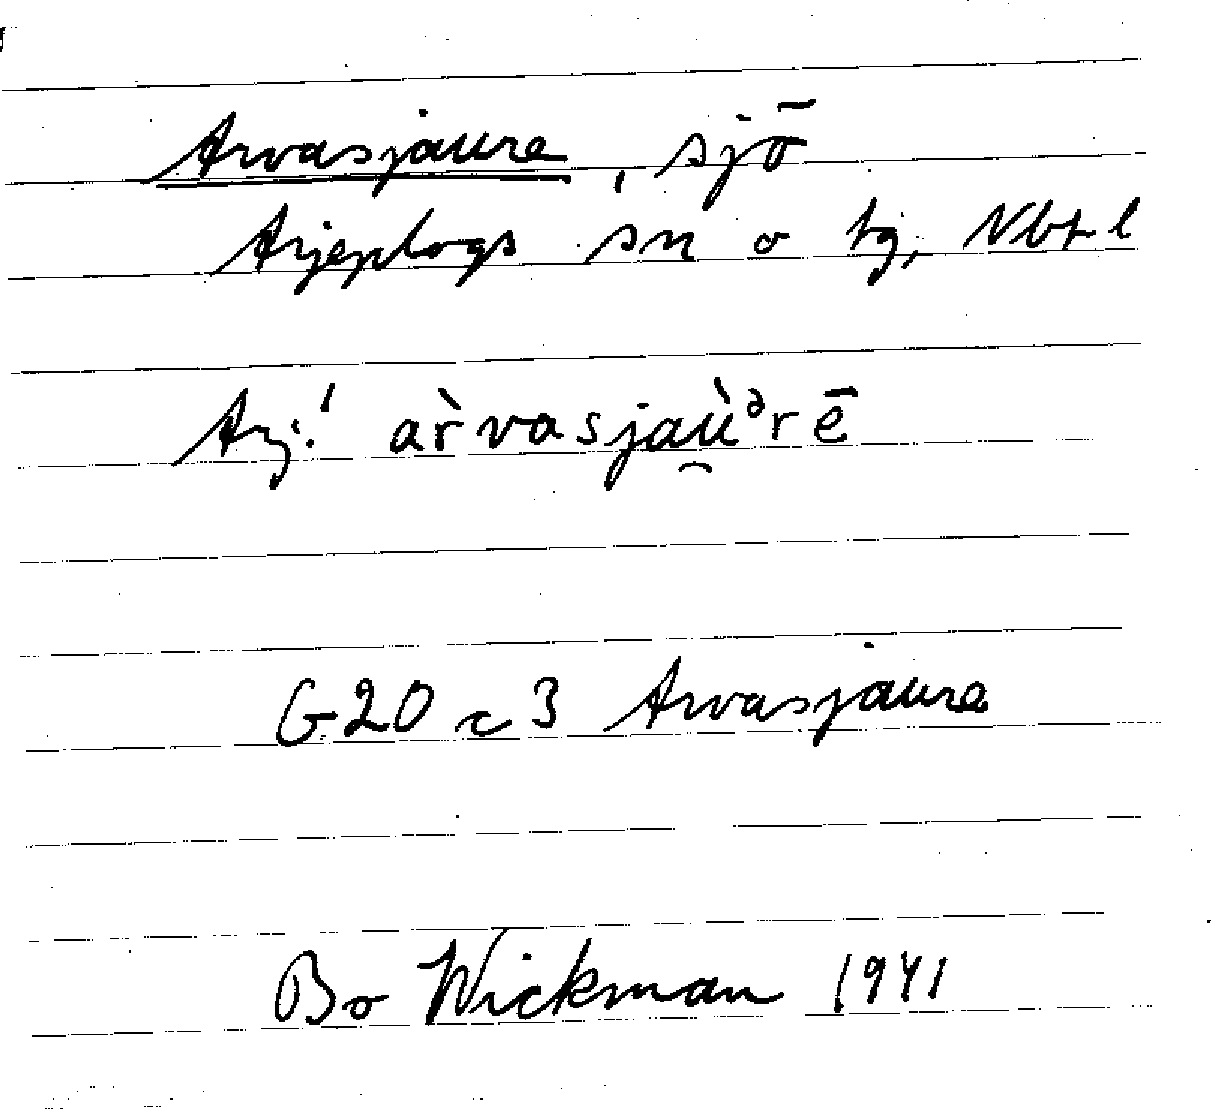 Arvasjaure, sjö
Arjeplogs sn o tg, Nbt l
Arj.! ar̀vasjaù̯ᵊrē
G20 c 3 Arvasjaure
Bo Wickman 1941